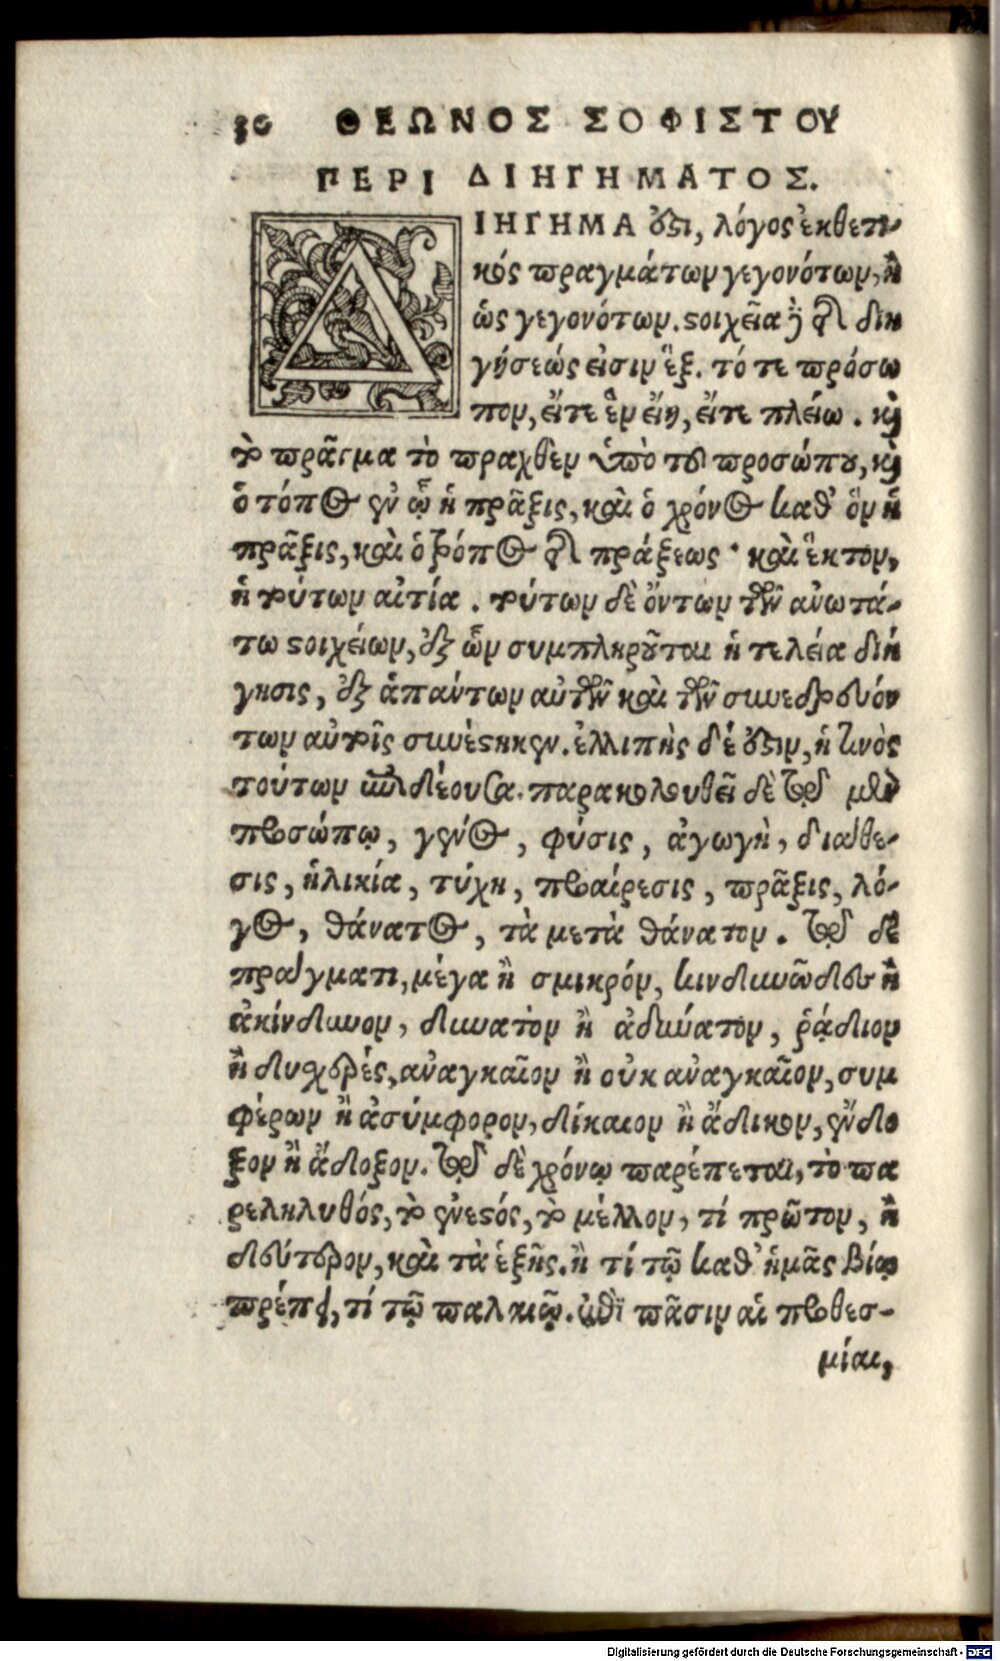 30 ΘΕΩΝΟΣ ΣΟΦΙΣΤΟΥ
ΠΕΡΙ ΔΙΗΓΗΜΑΤΟΣ.
ΔΙΗΓΗΜΑ ἐστι, λόγος ἐκθετι-
κός πραγμάτων γεγονότων, ἢ
ὡς γεγονότων. στοιχεῖα δὲ τῆς διη
γήσεώς εἰσιν ἕξ. τό τε πρόσω
πον, εἴτε ἓν εἴη, εἴτε πλείω. καὶ
τὸ πρᾶγμα τὸ πραχθὲν ὑπὸ τοῦ προσώπου, καὶ
ὁ τόπος ἐν ᾧ ἡ πρᾶξις, καὶ ὁ χρόνος καθ' ὃν ἡ
πρᾶξις, καὶ ὁ τρόπος τῆς πράξεως· καὶ ἕκτον,
ἡ τούτων αἰτία. τούτων δὲ ὄντων τῶν ἀνωτά-
τω στοιχείων, ἐξ ὧν συμπληροῦται ἡ τελεία διή
γησις, ἐξ ἁπάντων αὐτῶν καὶ τῶν συνεδρευόν
των αὐτοῖς συνέστηκεν. ἐλλιπὴς δέ ἐστιν, ἡ τινὸς
τούτων ἐπιδέουσα. παρακολουθεῖ δὲ τῷ μὲν
προσώπῳ, γένος, φύσις, ἀγωγὴ, διάθε-
σις, ἡλικία, τύχη, προαίρεσις, πρᾶξις, λό-
γος, θάνατος, τὰ μετὰ θάνατον. τῷ δὲ
πράγματι, μέγα ἢ σμικρόν, κινδυνῶδες ἢ
ἀκίνδυνον, δυνατὸν ἢ ἀδύνατον, ῥᾴδιον
ἢ δυχερές, ἀναγκαῖον ἢ οὐκ ἀναγκαῖον, συμ
φέρων ἢ ἀσύμφορον, δίκαιον ἢ ἄδικον, ἔνδο
ξον ἢ ἄδοξον. τῷ δὲ χρόνῳ παρέπεται, τὸ πα
ρεληλυθός, τὸ ἐνεστός, τὸ μέλλον, τί πρῶτον, ἢ
δεύτερον, καὶ τὰ ἑξῆς. ἢ τί τῷ καθ' ἡμᾶς βίῳ
πρέπει, τί τῷ παλαιῷ. ἐπὶ πᾶσιν αἱ προθεσ-
μίαι,
Digitalisierung gefördert durch die Deutsche Forschungsgemeinschaft - DFG